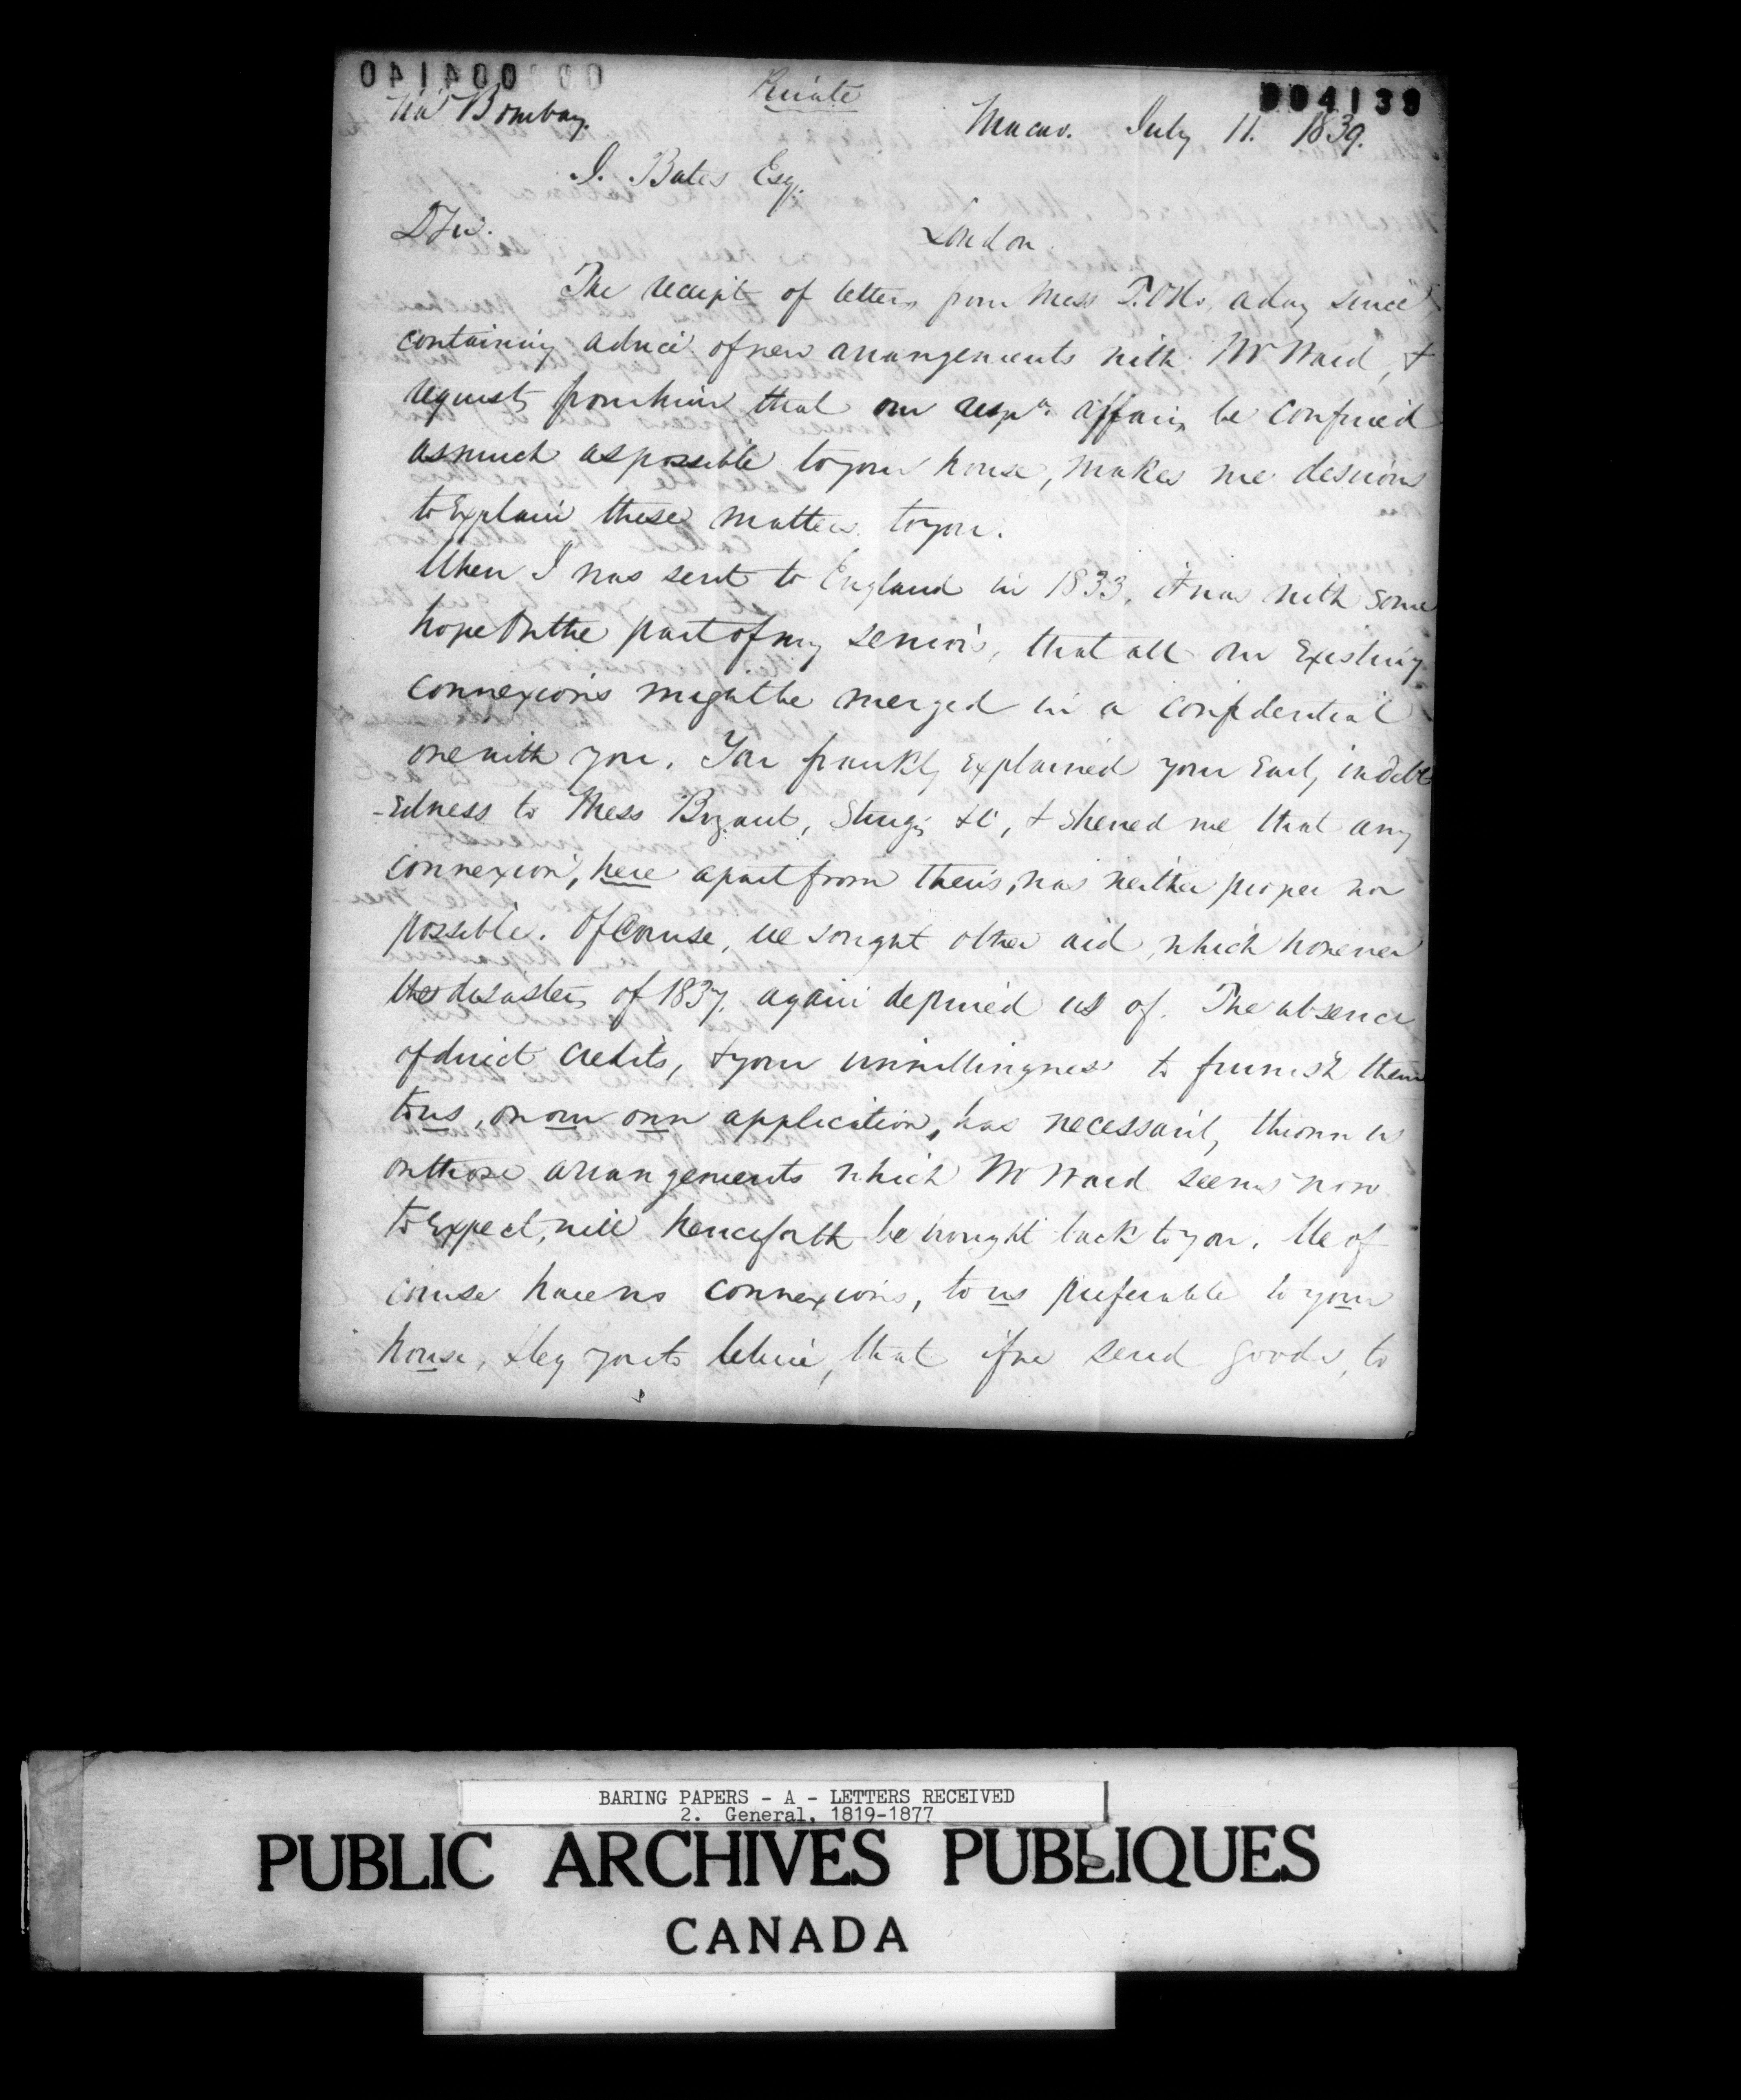 004139
Private
Via Bombay.
Macao. July 11. 1839.
J. Bates Esq.
London.
D Sir.
The receipt of letters from Mess a day since
containing advice of new arrangements with Mr Ward, &
requests from him that our resp.ve affairs be confined
as much as possible to your house, makes me desirous
to Explain these matters to you.
When I was sent to England in 1833, it was with some
hope On the part of my seniors, that all our Existing
connexions might be merged in a confidential
one with you. You frankly Explained your Early indebt
-edness to Mess Bryant, Sturgis & Co, & shewed me that any
connexion, here apart from theirs, was neither proper nor
possible. Of Course, we sought other aid, which however
the disasters of 1837. again deprived us of. The absence
of direct credits, & your unwillingness to furnish them
to us, on our own application, has necessarily thrown us
on those arrangements which Mr Ward seems now
to Expect, will henceforth be brought back to you. We of
course have no connexions, to us preferable to your
house, & beg you to believe, that if we send goods, to
BARING PAPERS - A - LETTERS RECEIVED
2. General, 1819-1877
PUBLIC ARCHIVES PUBLIQUES
CANADA